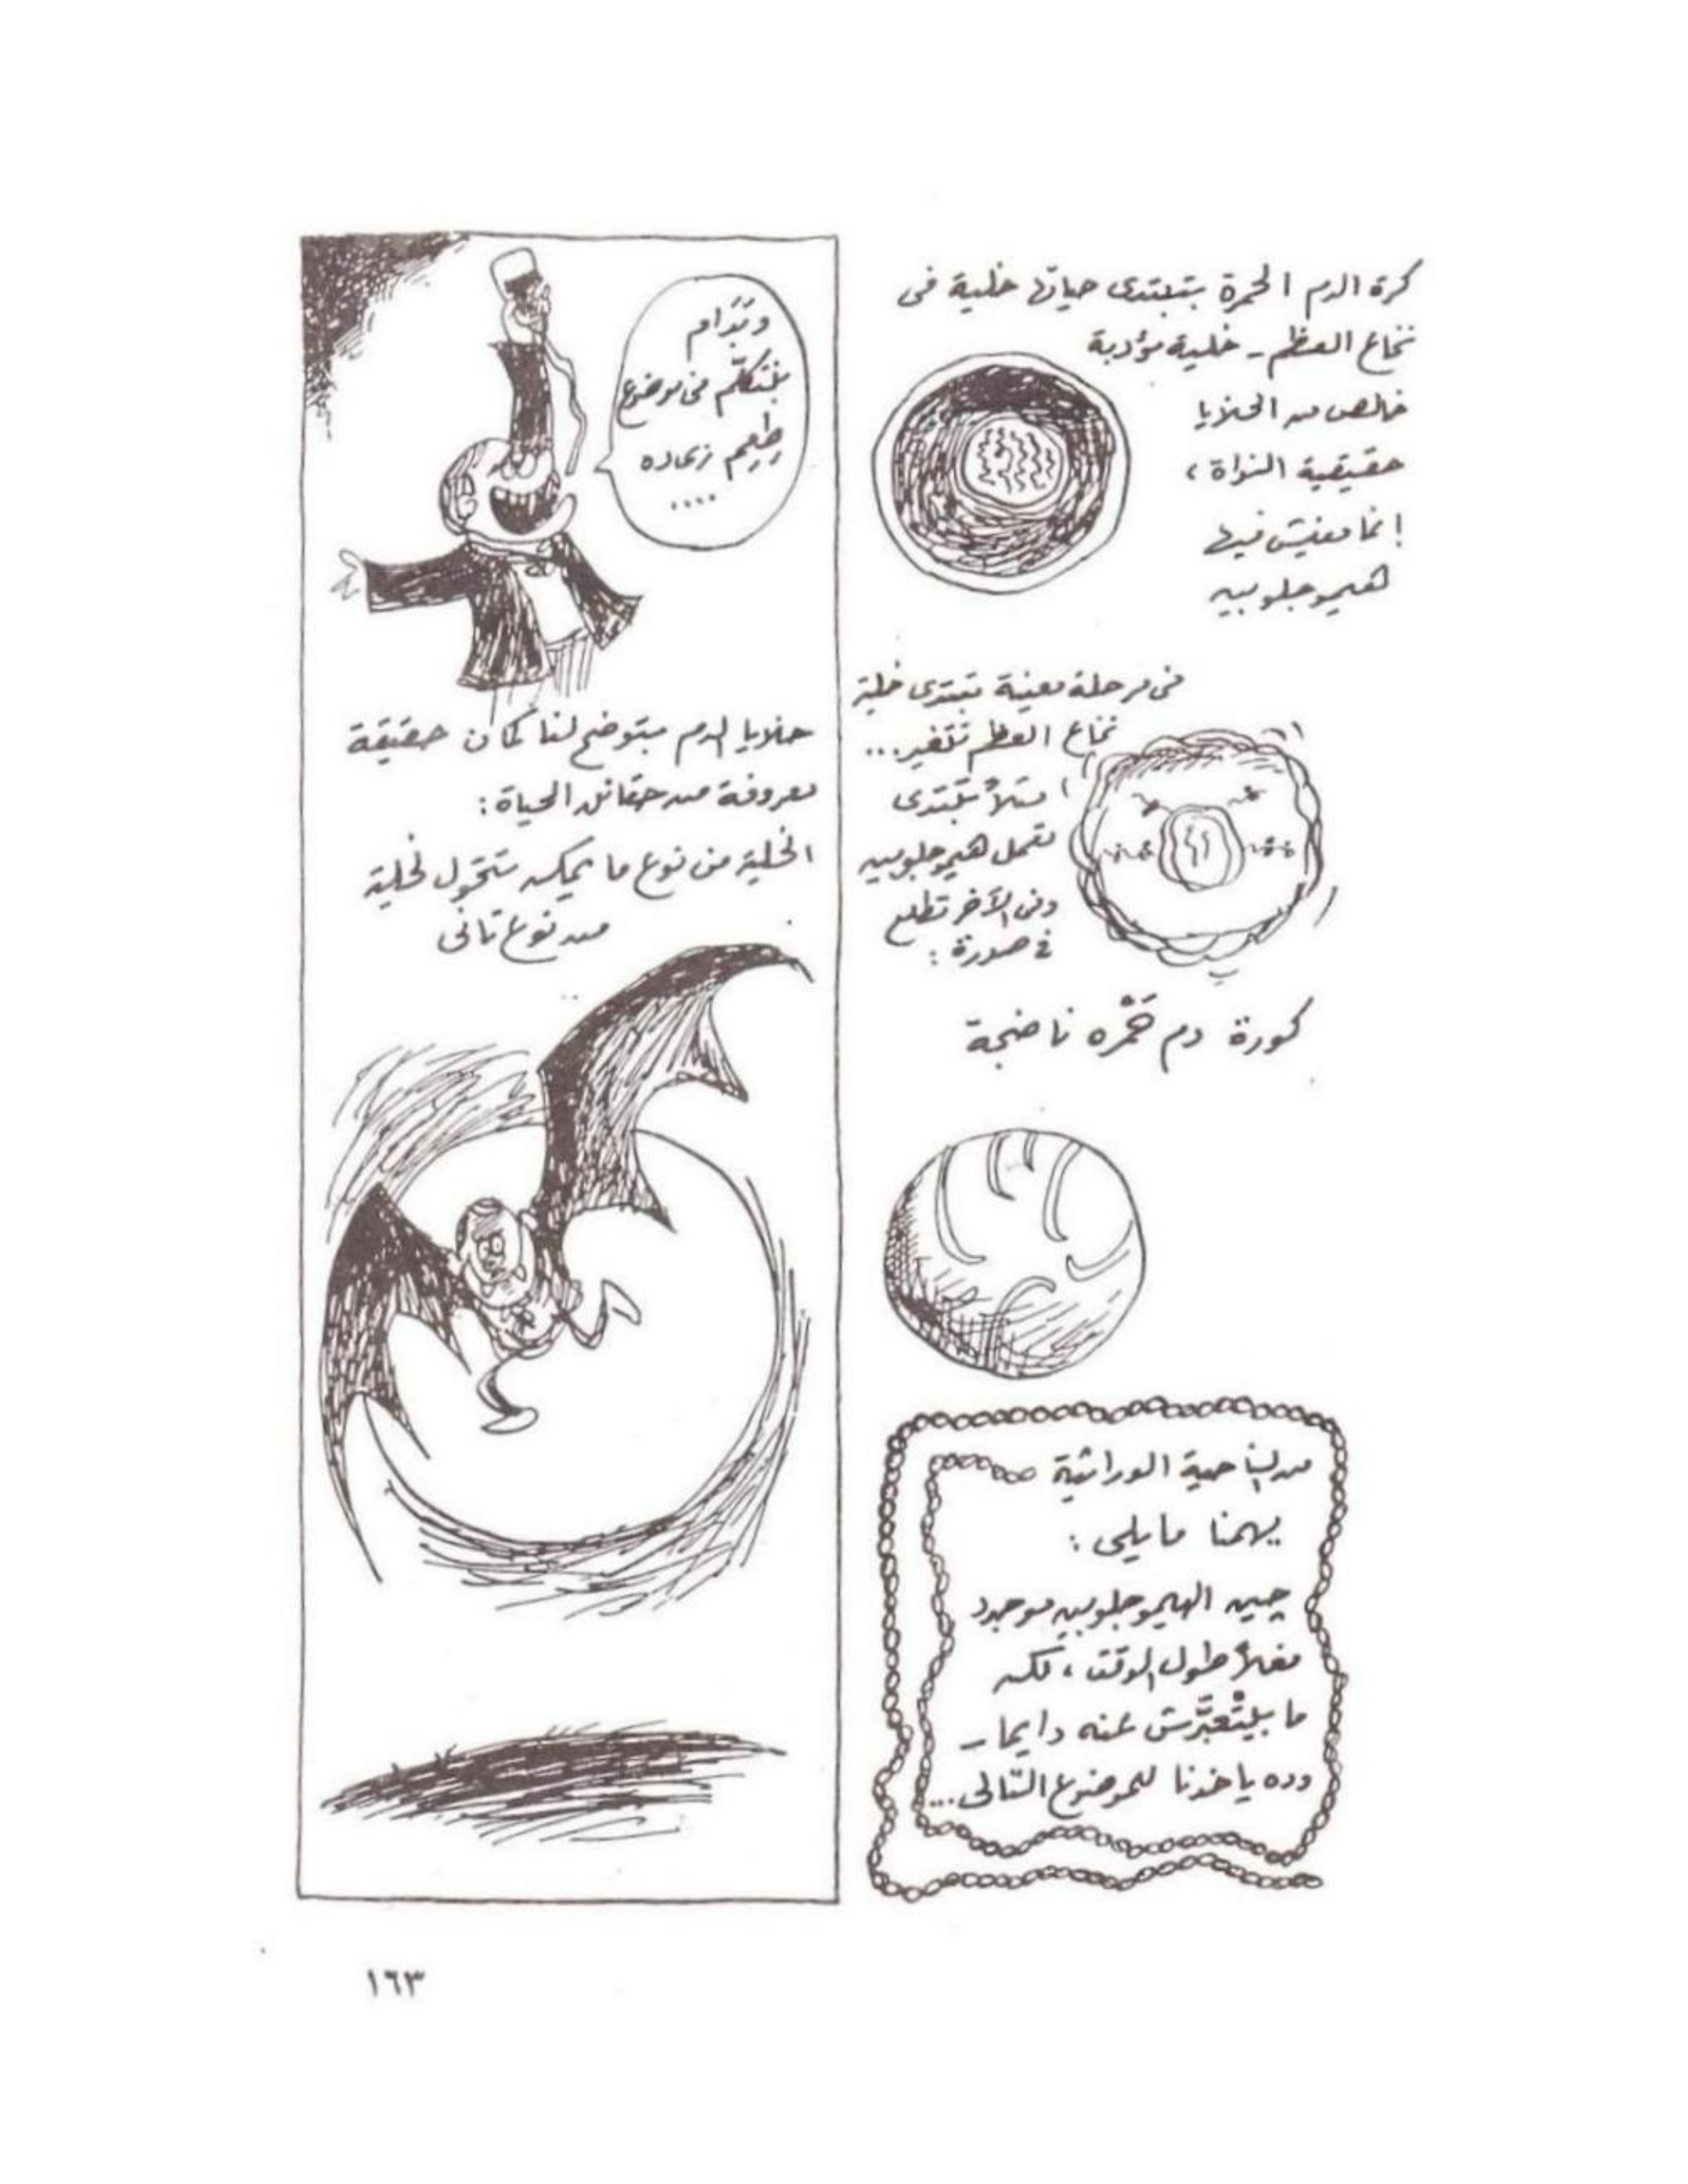 كرة الدم الحمرة بتبتدى حياتها خلية فى
نخاع العظم - خلية مؤدبة
خالص من الخلايا
حقيقية النواة،
إنما مفيش فيها
هيموجلوبين
فى مرحلة معينة تبتدى خلية
نخاع العظم تتغير...
مثلاً تبتدى
تعمل هيموجلوبين
وفى الآخر تطلع
فى صورة:
كورة دم حَمْره ناضجة
من الناحية الوراثية
يهمنا ما يلى:
چين الهيموجلوبين موجود
فعلاً طول الوقت، لكن
ما بيتْعبَّرش عنه دايما -
وده ياخدنا للموضوع التالى...
بنتكلّم فى موضوع
زى ده
....
خلايا الدم بتوضح لنا كمان حقيقة
معروفة من حقائق الحياة:
الخلية من نوع ما يمكن تتحول لخلية
من نوع تانى
١٦٣